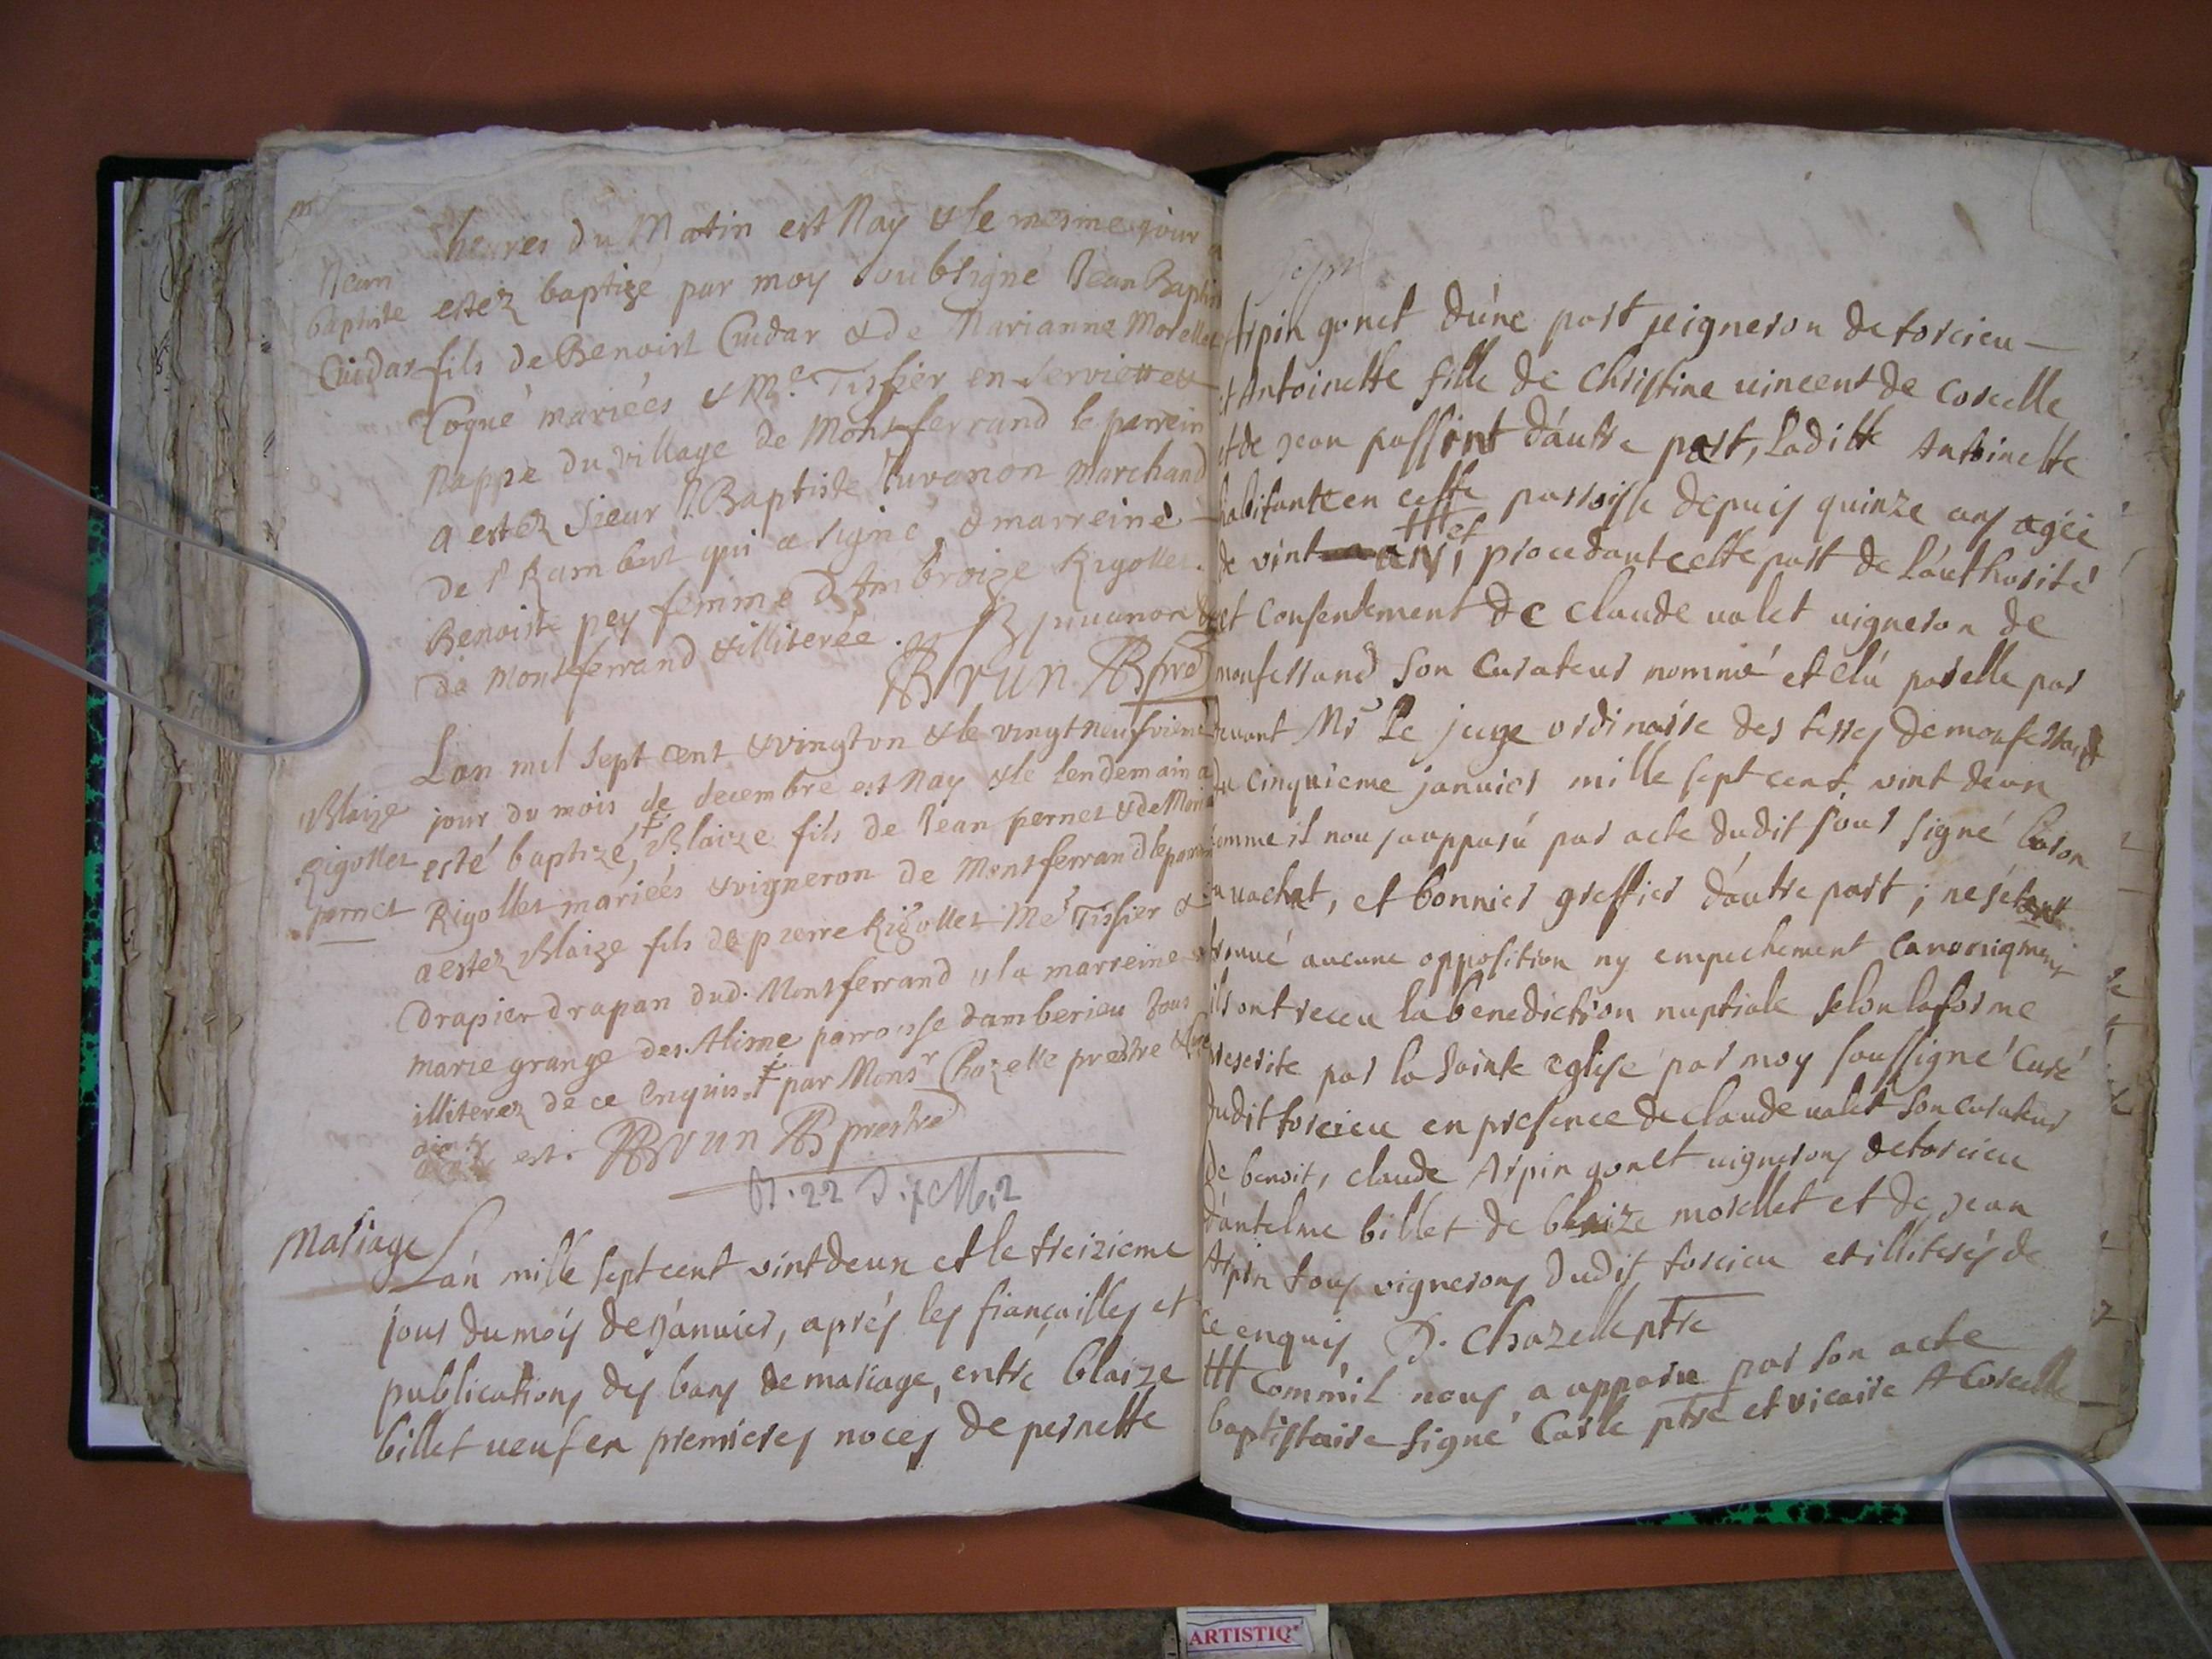 heures du Matin est Nay & le mesme jour a
Jean
baptiste
Cuidar
estez baptize par moy soubsigne Jean Baptiste
fils de Benoist Cuidar & de Marianne Morellet
Cogné mariées & Me. Tissier en serviettes
Nappe du village de Montferrand le parrein
a estez sieur J. Baptiste Juvanon Marchand
de St Rambert qui a signé & marreine
Benoiste pey femme d'Ambroize Rigollet
de Montferrand & illiterée. J B juuanon
Brun prê
Blaize
Rigollet
pernet
Lan mil sept cent & vingt vn & le vingt neufvieme
jour du mois de decembre est Nay & le lendemain a
esté baptizé, Blaize fils de Jean pernet & de Maria
Rigollet mariées & vigneron de Montferrand le parrein
a estez Blaize fils de pierre Rigollet Me. Tissier &
drapier drapan dud. Montferrand & la marreine
marie grange des Alime parroisse damberieu tous
illiterez de ce Enquis. par Monsr Chazelle prestre &
est. Brun prestre
B. 22 D. 7 M. 2
Mariage
Lán mille sept cent vint deux et le treizieme
jour du moiy de Jánuier, aprés les fiançailles et
publications des bans de mariage, entre blaize
billet ueuf en premieres noces de pernette
Arpin gonet dúne part uigneron de torcieu
et Antoinette fille de Christine uincent de corcelle
et de jean passint dáutre part, Laditte Antoinette
habitante en cette parroisse depuis quinze ans agée
de vint ans, et procedant cette part de láuthorité
et Consentement de claude ualet uigneron de
monferrand son Curateur nommé et élú par elle par
deuant Mr Le juge ordinaire des terres de monferrand
du cinquieme januier mille sept cent vint deux
comme il nous a apparú par acte dudit jour signé baron
du uachat, et bonnier greffier dáutre part; ne sétant
trouué aucune opposition ny empechement canoniqment
ils ont receu la benediction nuptiale selon la forme
prescrite par la sainte eglise par moy soussigné Curé
dudit torcieu en presence de claude ualet son curateur
de benoit, claude Arpin gonet uignerons de torcieu
dántelme billet de blaize morellet et de jean
Arpin tous vignerons dudit torcieu et illiterés de
ce enquis D. Chazelle ptre
Commil nous a apparu par son acte
baptistaire signé Carle ptre et vicaire A Corcelle
ARTISTIQ